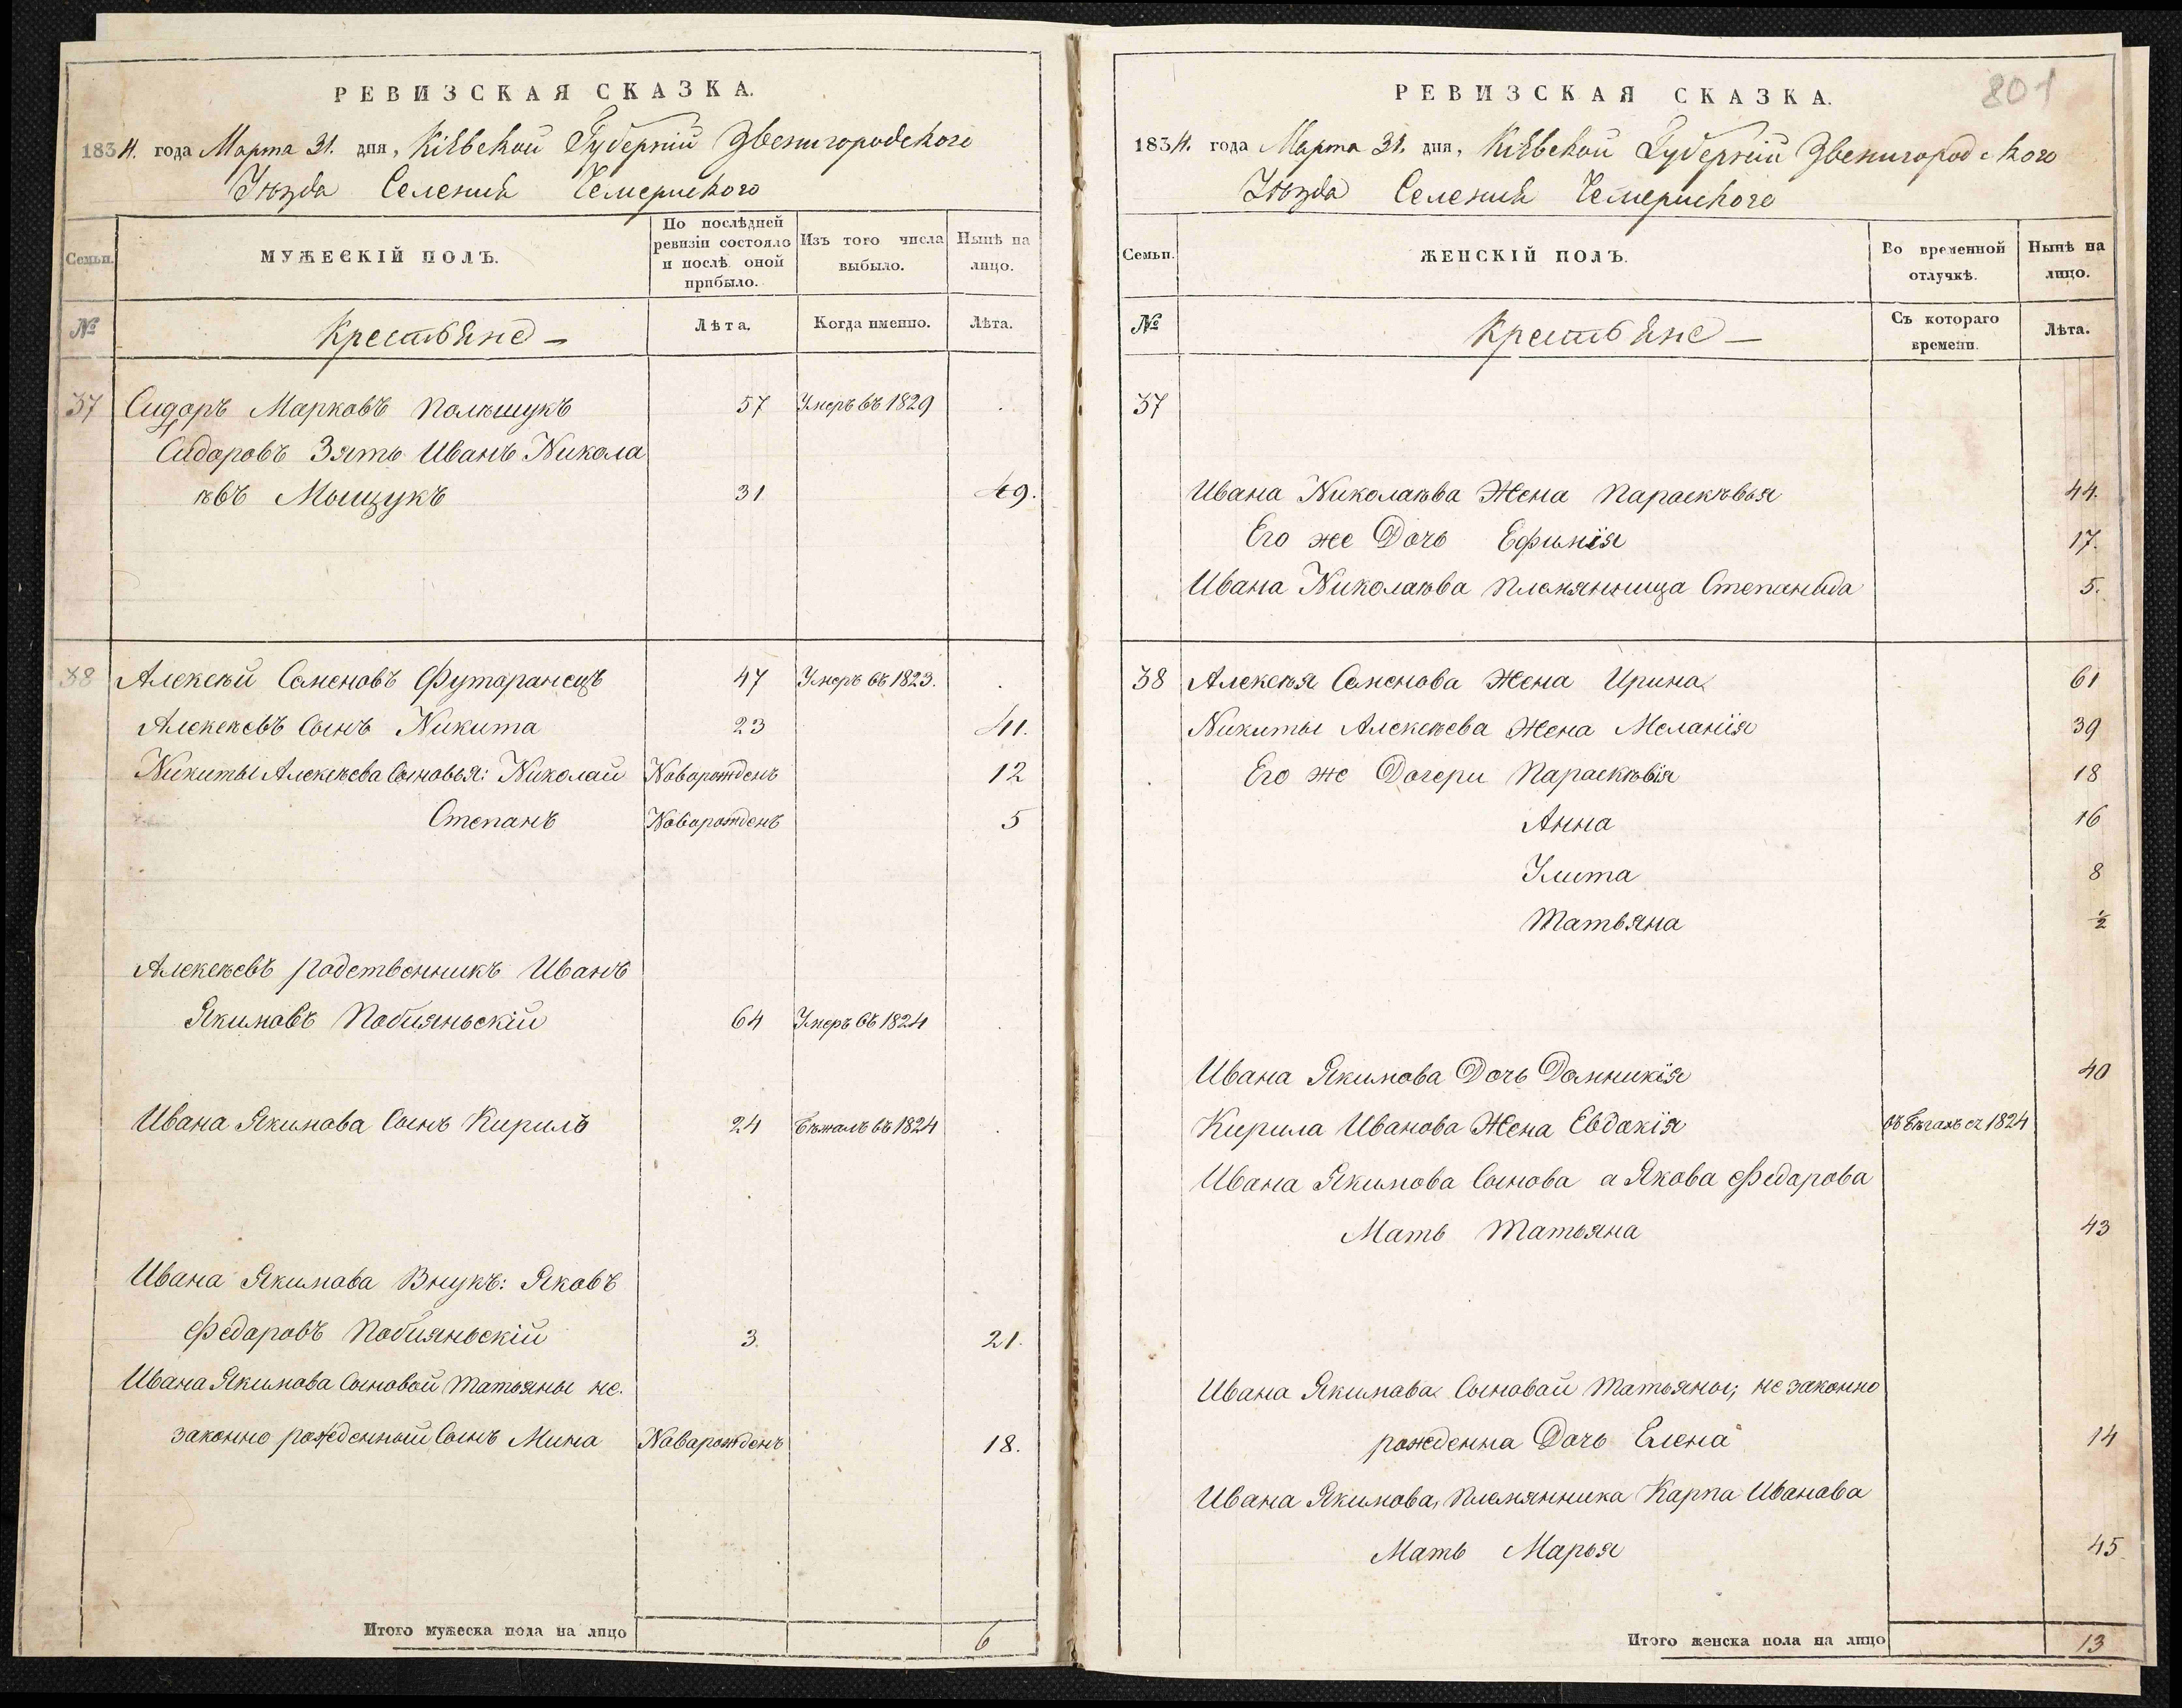 РЕВИЗСКАЯ СКАЗКА.
1834. года Марта 31. дня, Кіевской Губерніи Звенигородского
Уѣзда Селенія Чемериского
Семьи.
МУЖЕСКІЙ ПОЛЪ.
По послѣдней
ревизіи состояло
и послѣ оной
прибыло.
Изъ того числа
выбыло.
Нынѣ на
лицо.
№
Крестьяне
Лѣта.
Когда именно.
Лѣта.
37 Сидоръ Марковъ Полѣщукъ 57 Умеръ въ 1829
Сидоровъ Зять Иванъ Никола
ѣвъ Мощукъ 31 49.
38 Алексѣй Семеновъ Футоранецъ 47 Умеръ въ 1823.
Алексѣевъ Сынъ Никита 23 41.
Никиты Алексѣева Сыновья: Николай Новорожденъ 12
Степанъ Новорожденъ 5
Алексѣевъ родственникъ Иванъ
Якимовъ Побияньскій 64 Умеръ въ 1824
Ивана Якимова Сынъ Кирилъ 24 Бѣжалъ въ 1824
Ивана Якимова Внукъ: Яковъ
Федоровъ Побияньскій 3. 21.
Ивана Якимова Сыновой Татьяны не.
законно рожденный Сынъ Мина Новорожденъ 18.
Итого мужеска пола на лицо 6
801
РЕВИЗСКАЯ СКАЗКА.
1834. года Марта 31. дня, Кіевской Губерніи Звенигородского
Уѣзда Селенія Чемериского
Семьи.
ЖЕНСКІЙ ПОЛЪ.
Во временной
отлучкѣ.
Нынѣ на
лицо.
№
Крестьяне
Съ котораго
времени.
Лѣта.
37
Ивана Николаѣва Жена Параскѣвья 44.
Его же Дочь Ефимія 17.
Ивана Николаѣва племянница Степанида 5.
38 Алексѣя Семенова Жена Ирина 61
Никиты Алексѣева Жена Меланія 39
Его же Дочери Параскѣвія 18
Анна 16
Улита 8
Татьяна ½
Ивана Якимова Дочь Домникія 40
Кирила Иванова Жена Евдокія въ бѣгахъ съ 1824
Ивана Якимова Сынова а Якова Федорова
Мать Татьяна 43
Ивана Якимова Сыновой Татьяны; не законно
рожденна Дочь Елена 14
Ивана Якимова, племянника Карпа Иванова
Мать Марья 45
Итого женска пола на лицо 13